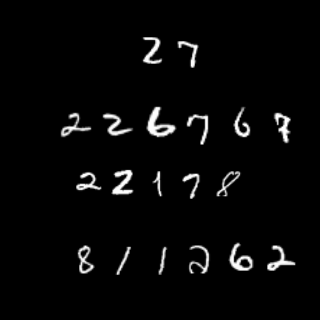 27
226767
22178
811262